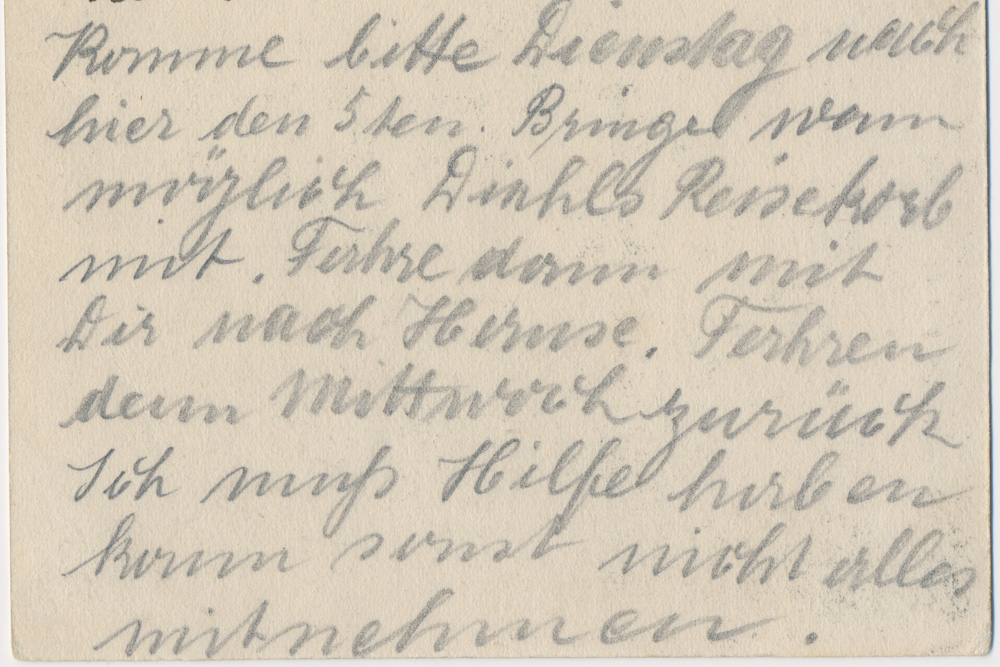 Komme bitte Dienstag nach
hier den 5ten. Bringe wenn
möglich Diehls Reisekorb
mit. Fahre dann mit
Dir nach Hause. Fahren
dann Mittwoch zurück
Ich muß Hilfe haben
kann sonst nicht alles
mitnehmen.